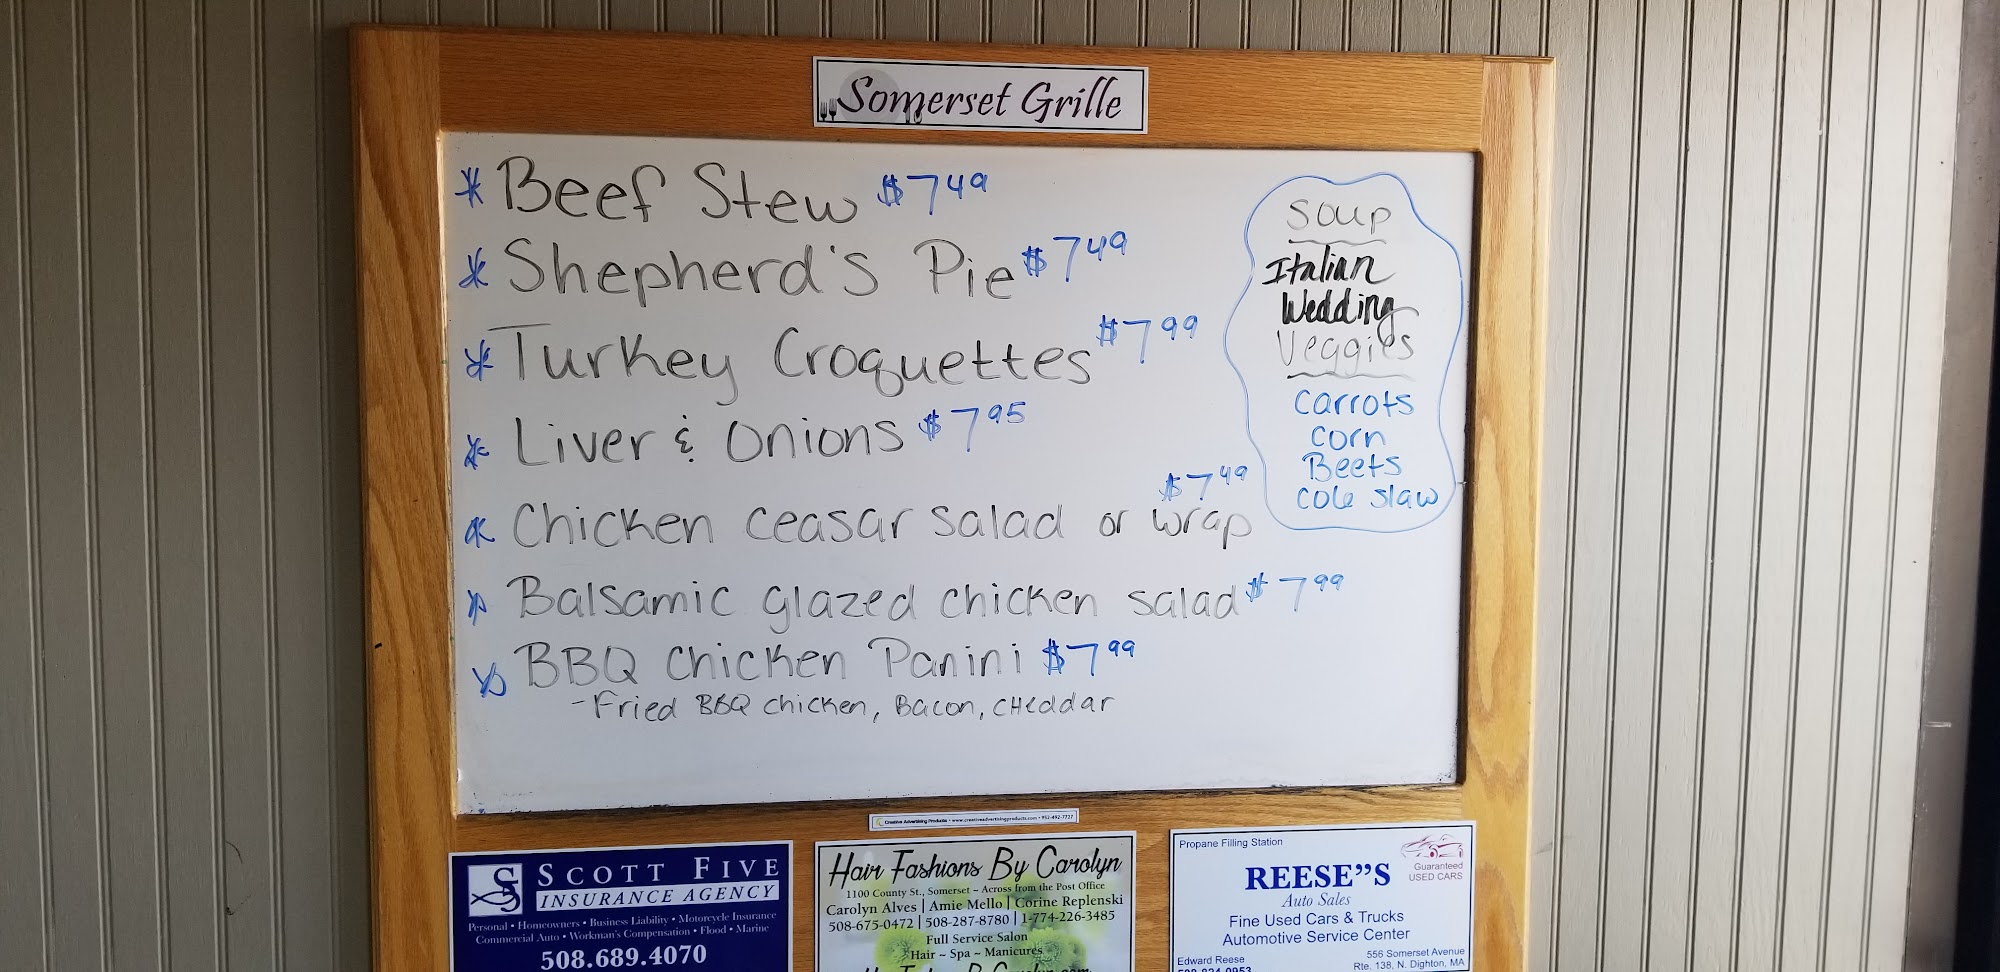 Somerset Grille
* Beef Stew $7 49
* Shepherd's Pie $7 49
* Turkey Croquettes $7 99
* Liver & Onions $7 95
* Chicken Ceasar Salad or Wrap $7 49
* Balsamic glazed chicken salad $7 99
* BBQ Chicken Panini $7 99
- Fried BBQ chicken, Bacon, cheddar
Soup
Italian
Wedding
Veggies
Carrots
Corn
Beets
Cole slaw
Creative Advertising Products • www.creativeadvertisingproducts.com • 952-492-7727
SCOTT FIVE
INSURANCE AGENCY
Personal • Homeowners • Business Liability • Motorcycle Insurance
Commercial Auto • Workman's Compensation • Flood • Marine
508.689.4070
Hair Fashions By Carolyn
1100 County St., Somerset ~ Across from the Post Office
Carolyn Alves | Amie Mello | Corine Replenski
508-675-0472 | 508-287-8780 | 1-774-226-3485
Full Service Salon
Hair ~ Spa ~ Manicures
Propane Filling Station
Guaranteed
USED CARS
REESE"S
Auto Sales
Fine Used Cars & Trucks
Automotive Service Center
Edward Reese
556 Somerset Avenue
Rte. 138, N. Dighton, MA